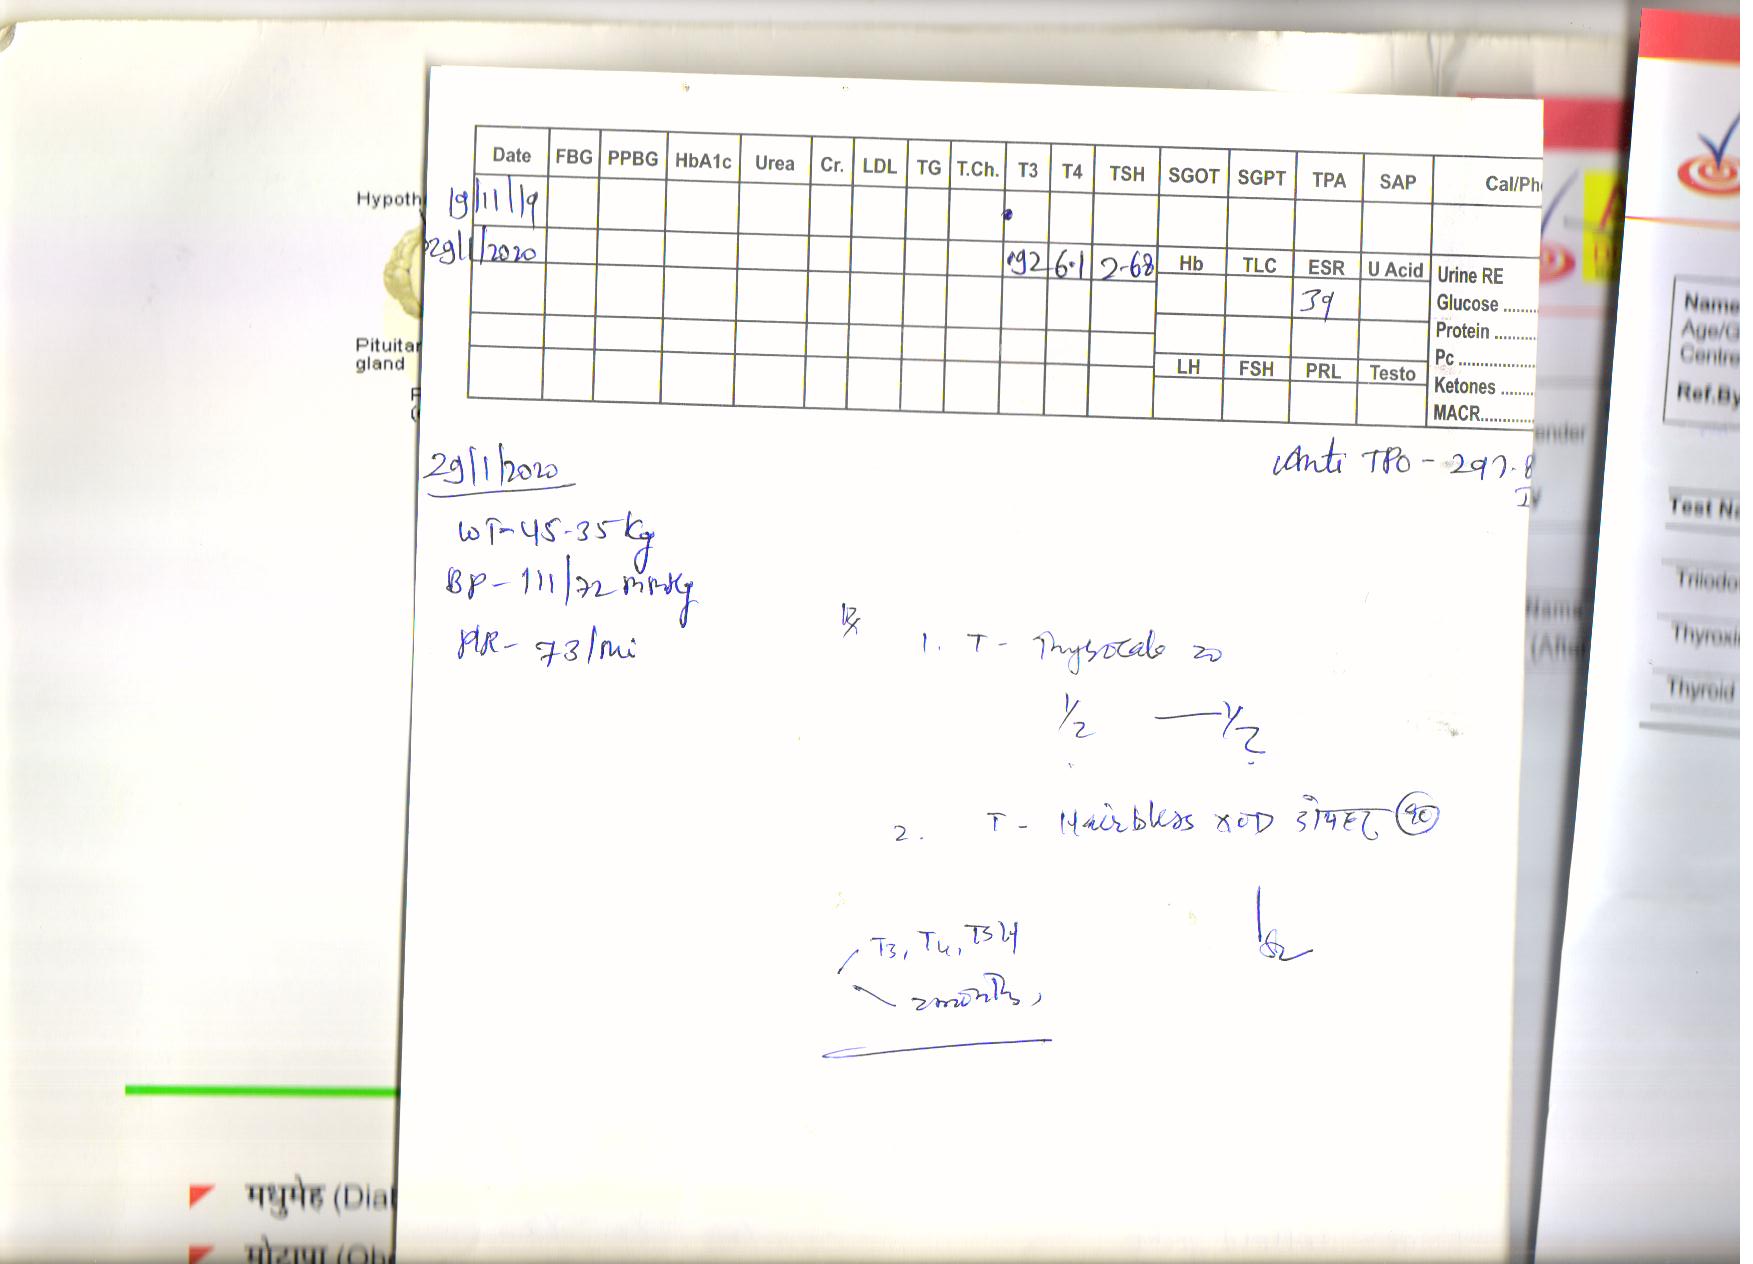 Date FBG PPBG HbA1c Urea Cr. LDL TG T.Ch. T3 T4 TSH SGOT SGPT TPA SAP Cal/Ph
19/11/19
29/1/2020 .92 6.1 2.68 Hb TLC ESR U Acid Urine RE
39 Glucose ........
Protein ..........
LH FSH PRL Testo Pc ................
Ketones .......
MACR............
Hypoth
Pituitar
gland
29/1/2020
Anti TPO - 297.8
WT-45.35 kg
BP - 111/72 mmHg
PR- 73/mi
Rx
1. T - Thyrocab 20
1/2 — 1/2
2. T - Hairbless XOD दोपहर
T3, T4, TSH
2 months,
मधुमेह (Dial
मोटापा (Obe
Name
Age/G
Centre
Ref.By
Test Na
Triiodo
Thyroxi
Thyroid
ender
Name
(Afte